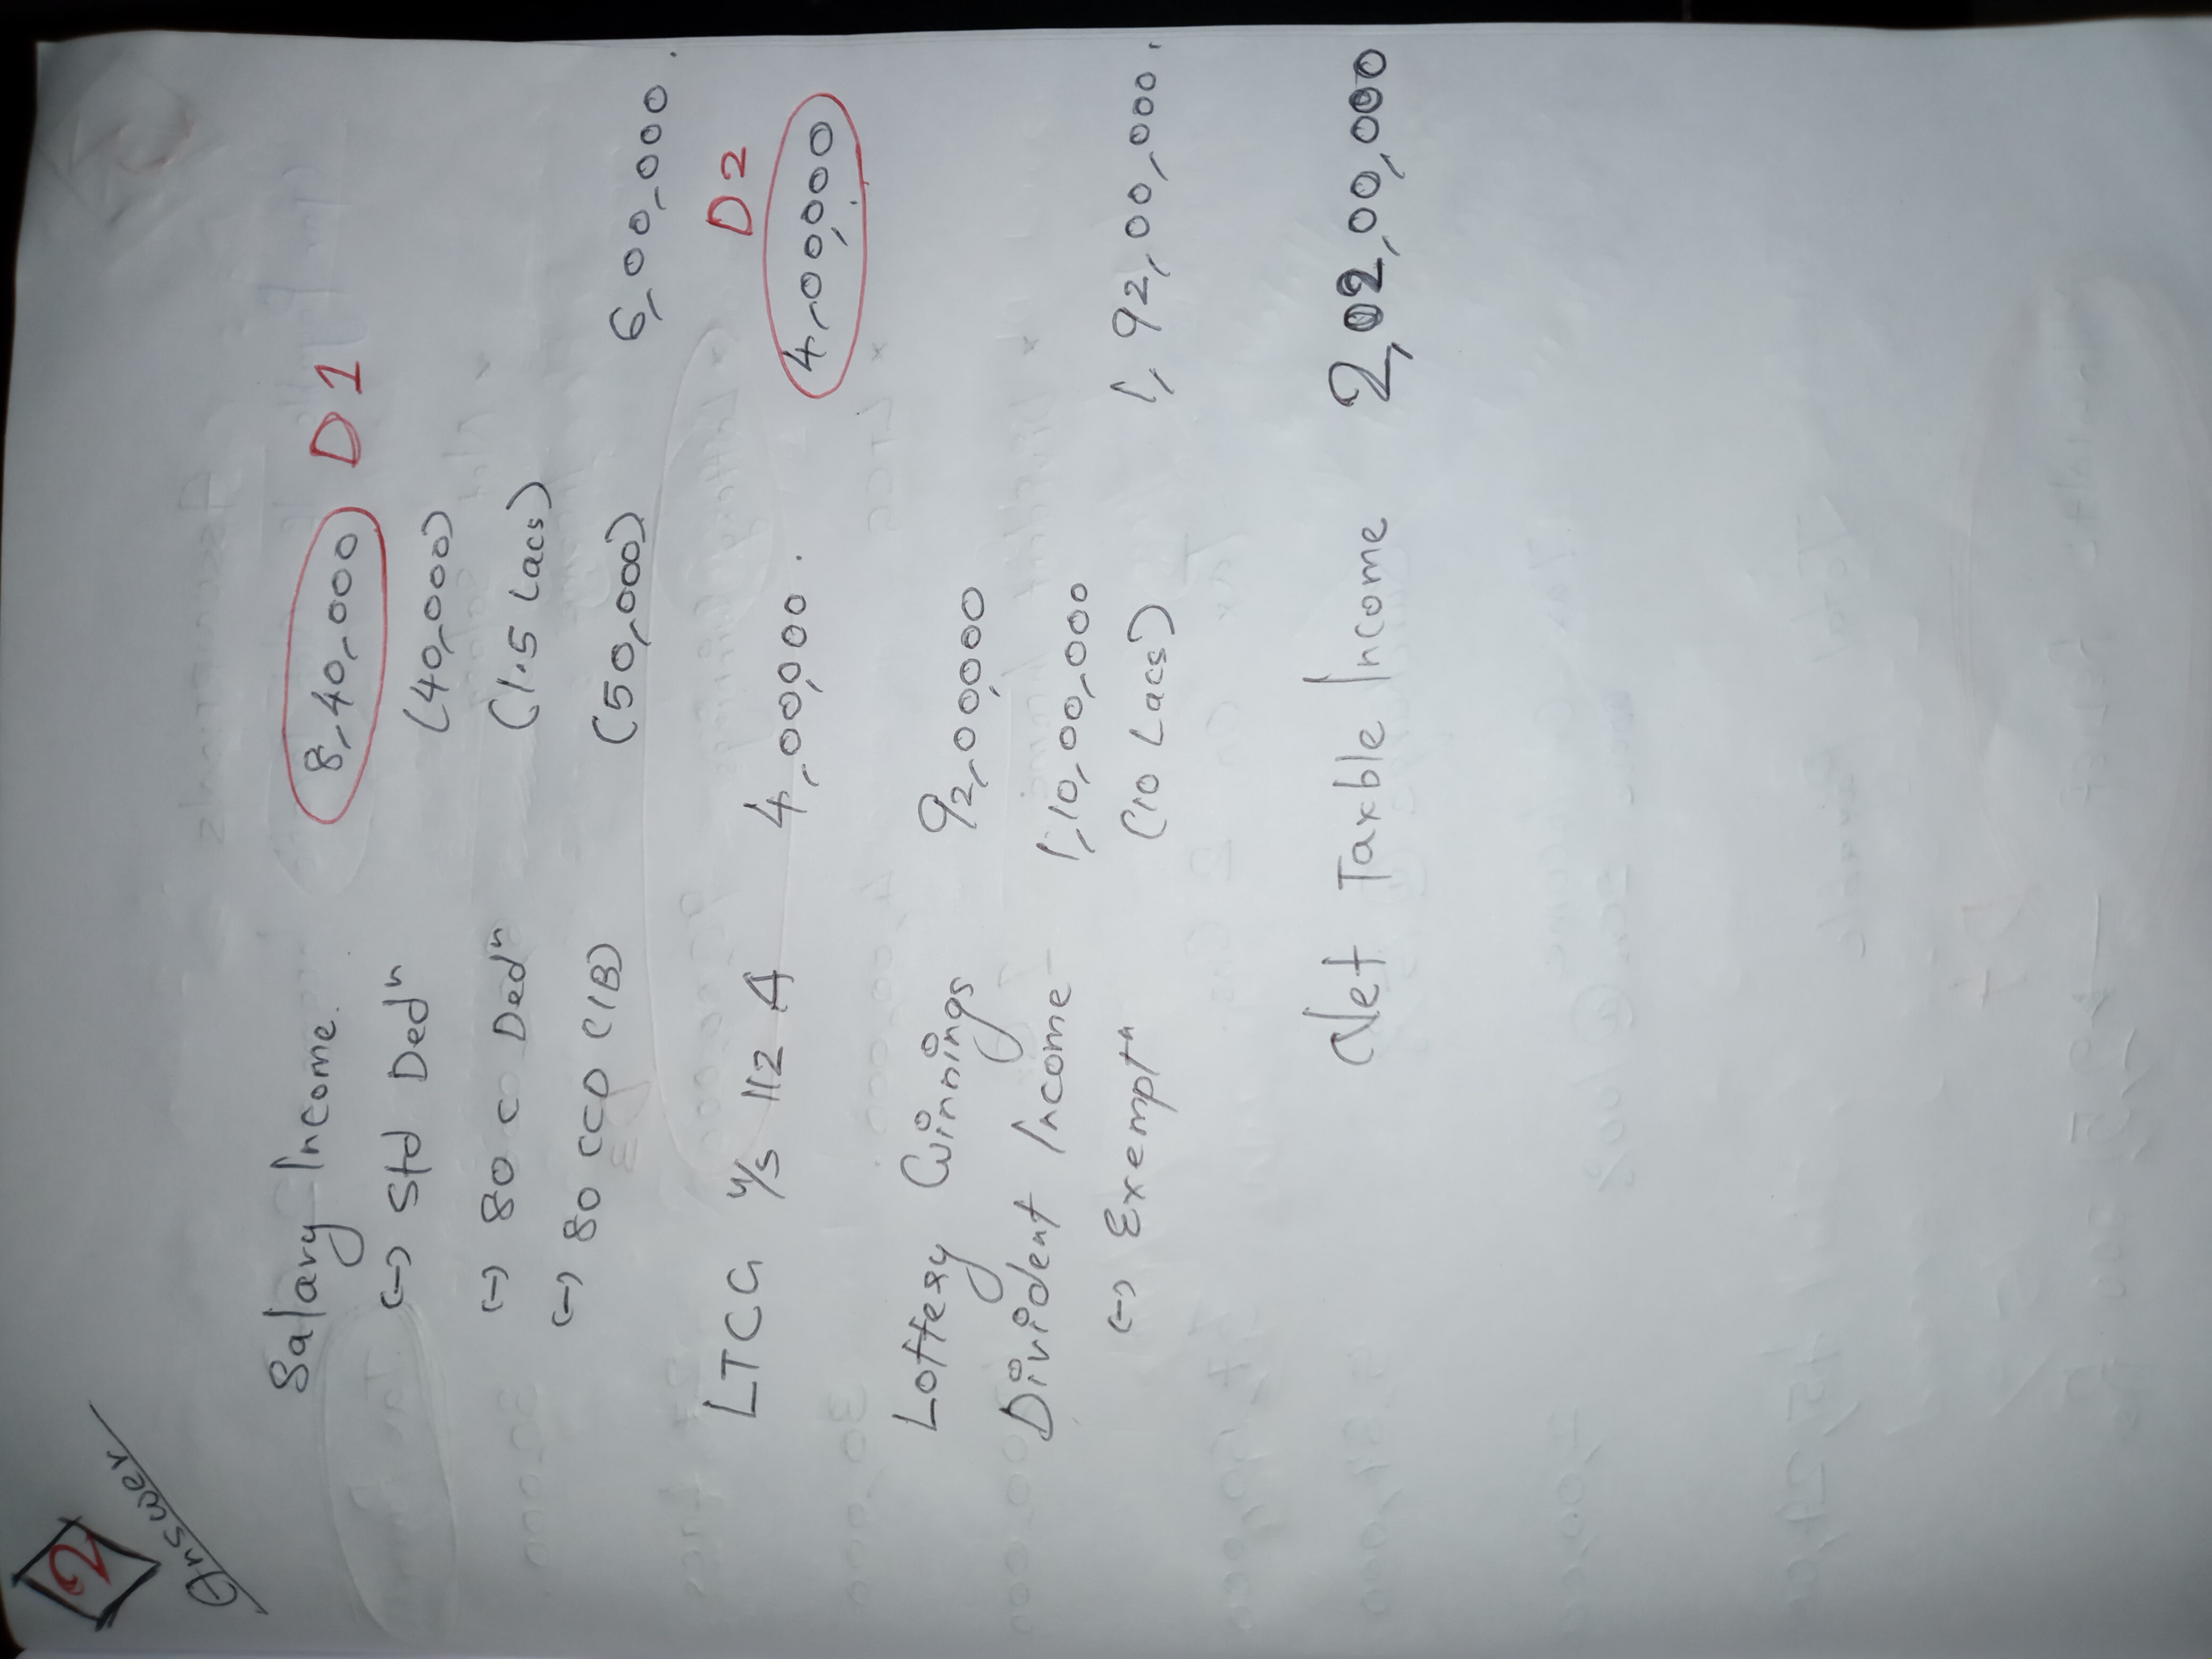 2
Answer
Salary Income. 8,40,000 D1
(-) Std Dedⁿ (40,000)
(-) 80 C Dedⁿ (1.5 Lacs)
(-) 80 CCD (1B) (50,000) 6,00,000.
D2
LTCG u/s 112 A 4,00,000. 4,00,000
Lottery Winnings 92,00,000
Divident Income - 1,10,00,000
(-) Exemptⁿ (10 Lacs) 1,92,00,000.
Net Taxble Income 2,02,00,000